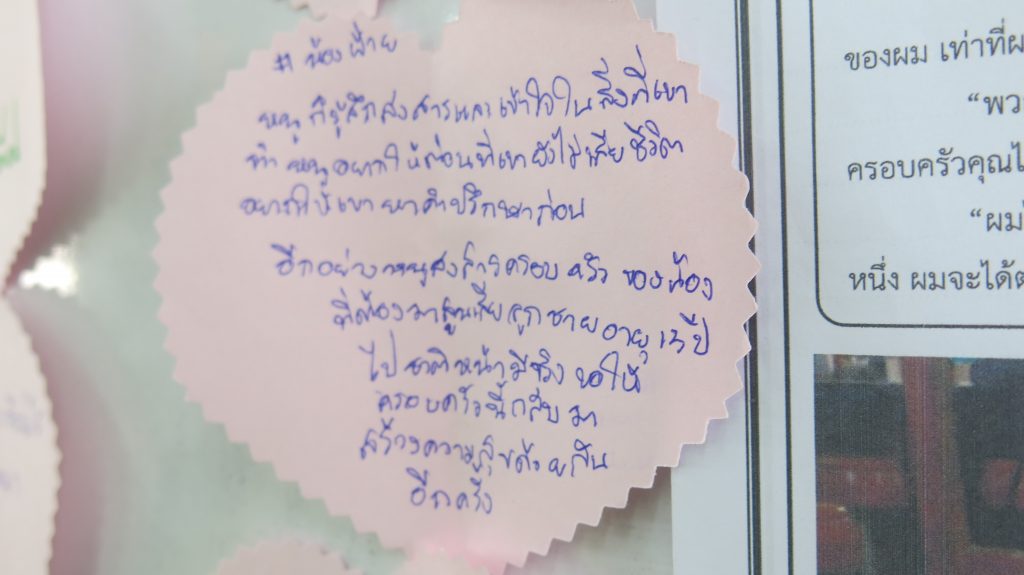 # น้องฝ้าย
หนู ก็รู้สึกสงสารและเข้าใจในสิ่งที่เขา
ทำ หนูอยากให้ก่อนที่เขายังไม่เสียชีวิต
อยากให้เขาหาคำปรึกษาก่อน
อีกอย่างหนูสงสารครอบครัว ของน้อง
ที่ต้องมาสูญเสียลูกชายอายุ 13 ปี
ไป ชาติหน้ามีจริง ขอให้
ครอบครัวนี้กลับมา
สร้างความสุขด้วยกัน
อีกครั้ง
ของผม เท่าที่ผ
“พว
ครอบครัวคุณไ
“ผม
หนึ่ง ผมจะได้ต